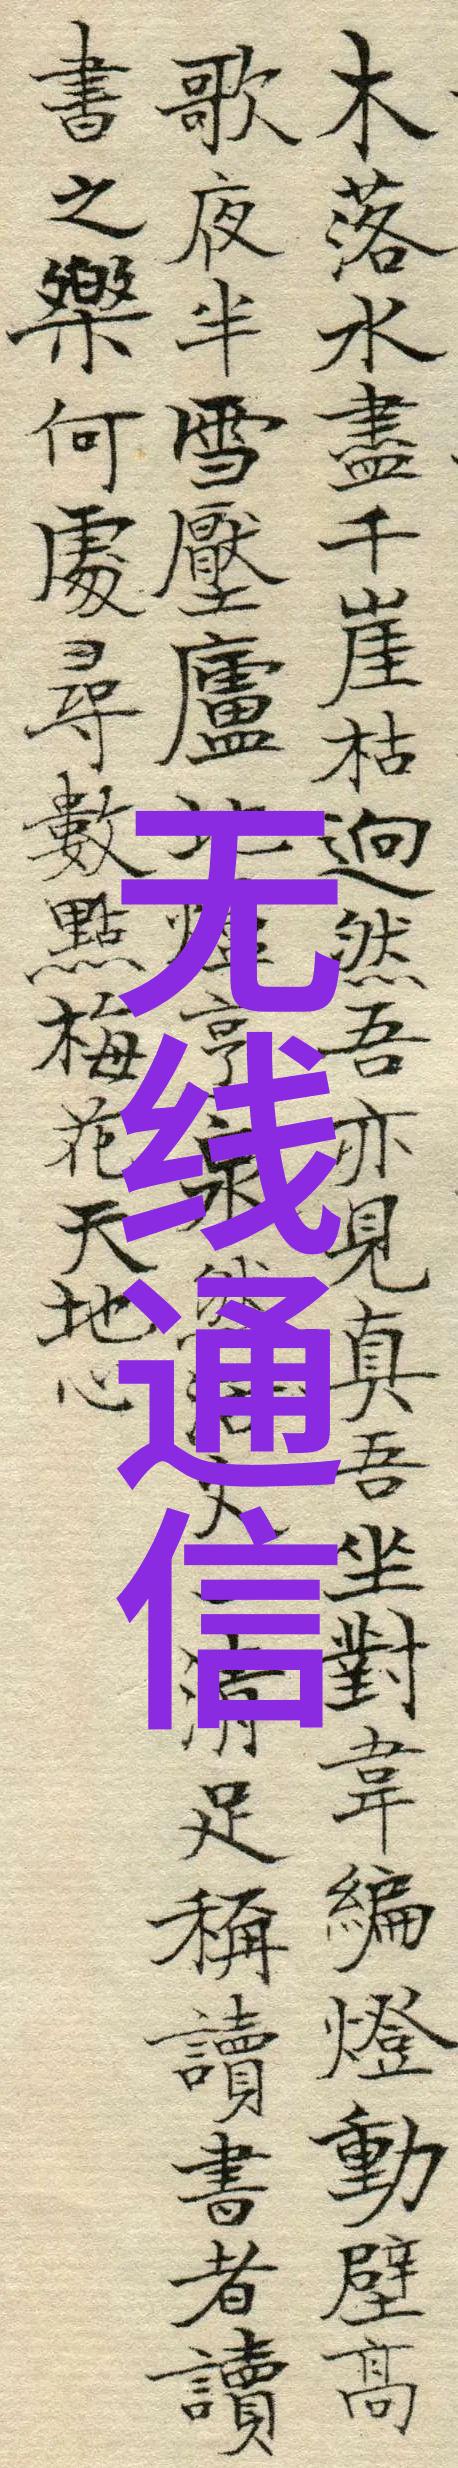 木落水盡千崖枯迥然吾亦見真吾坐對韋編燈動壁高
歌夜半雪壓廬地爐亨泉然活火一清足稱讀書者讀
書之樂何處尋數點梅花天地心
无线通信